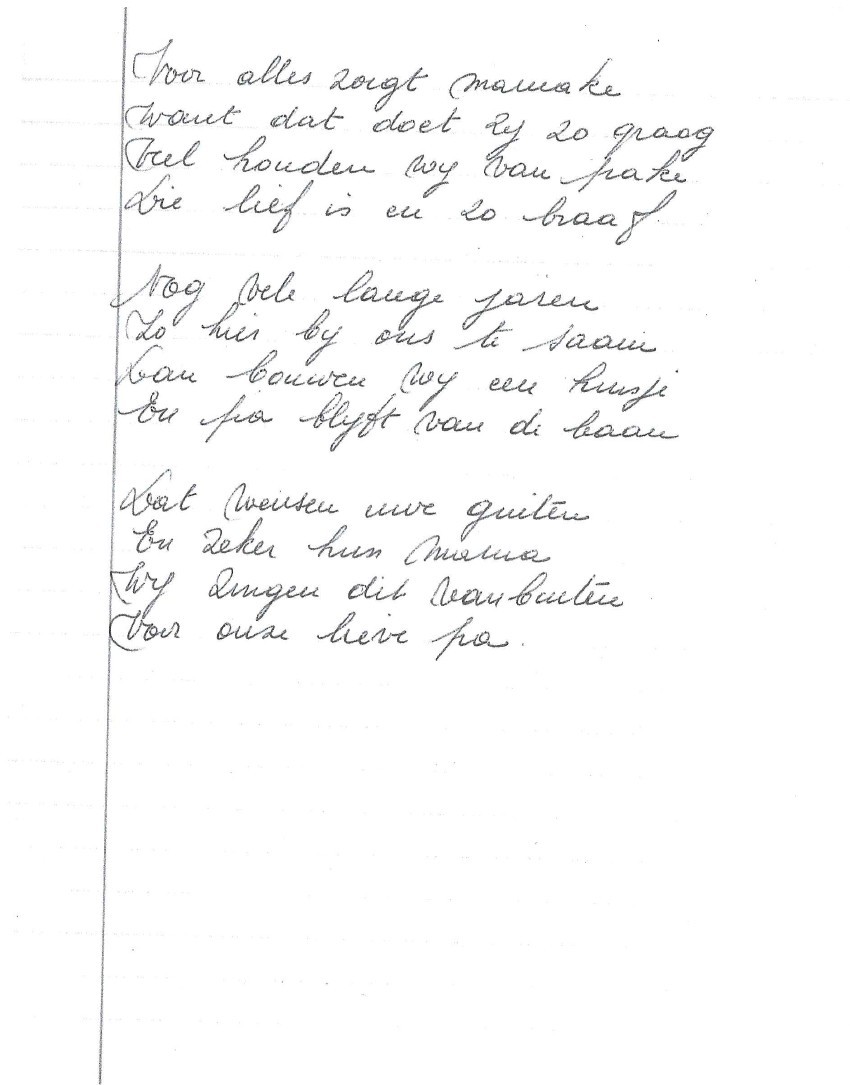 Voor alles zorgt mamake
Want dat doet zy zo graag
Veel houden wy van pake
Die lief is en zo braaf

Nog vele lange jaren
Zo hier by ons te saam
Dan bouwen wy een huisje
En pa blyft van de baan

Dat wensen uwe guiten
En zeker hun mama
Wy zingen dit van buiten
Voor onze lieve pa.